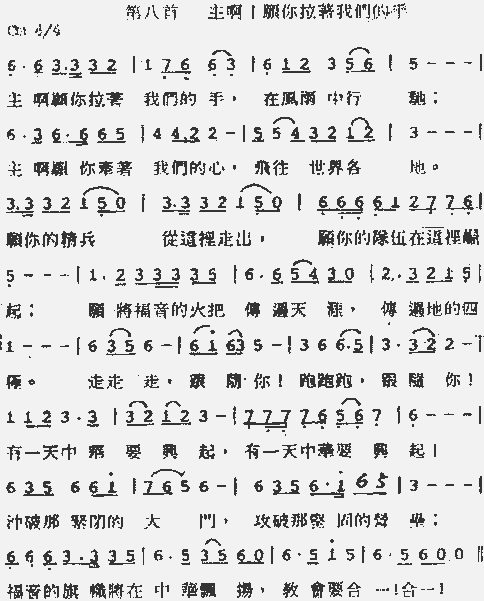 第八首 主啊！願你拉著我們的手
Ca 4/4
6·6 3·3 3 2 | 1 7 6 6 3 | 6 1 2 3 5 6 | 5 - - - |
主 啊願你拉著 我們的 手， 在風雨 中行 馳；
6·3 6·6 6 5 | 4 4·2 2 - | 5 5 4 3 2 1 2 | 3 - - - |
主 啊願 你牽著 我們的心， 飛往 世界各 地。
3·3 3 2 1 5 0 | 3·3 3 2 1 5 0 | 6 6 6 6 1 2 7 7 6 |
願你的精兵 從這裡走出， 願你的隊伍在這裡崛
5 - - - | 1·2 3 3 3 3 5 | 6·6 5 4 3 0 | 2·3 2 1 5 |
起； 願 將福音的火把 傳 遍天 涯， 傳 遍地的四
1 - - - | 6 3 5 6 - | 6 i 6 3 5 - | 3 6 6·5 | 3·3 2 2 - |
極。 走走 走， 跟 隨 你！ 跑跑跑， 跟 隨 你！
1 1 2 3·3 | 3 2 1 2 3 - | 7 7 7 7 6 5 6 7 | 6 - - - |
有一天中 華 要 興 起， 有一天中華要 興 起！
6 3 5 6 6 i | 7 6 5 6 - | 6 3 5 6·i 6 5 | 3 - - - |
沖破那 緊閉的 大 門， 攻破那堅 固的營 壘；
6 6 6 3·3 3 5 | 6·5 3 5 6 0 | 6·5 i 5 | 6·5 6 0 0 ‖
福音的旗 幟將在 中 華飄 揚， 教 會要合 一！合一！